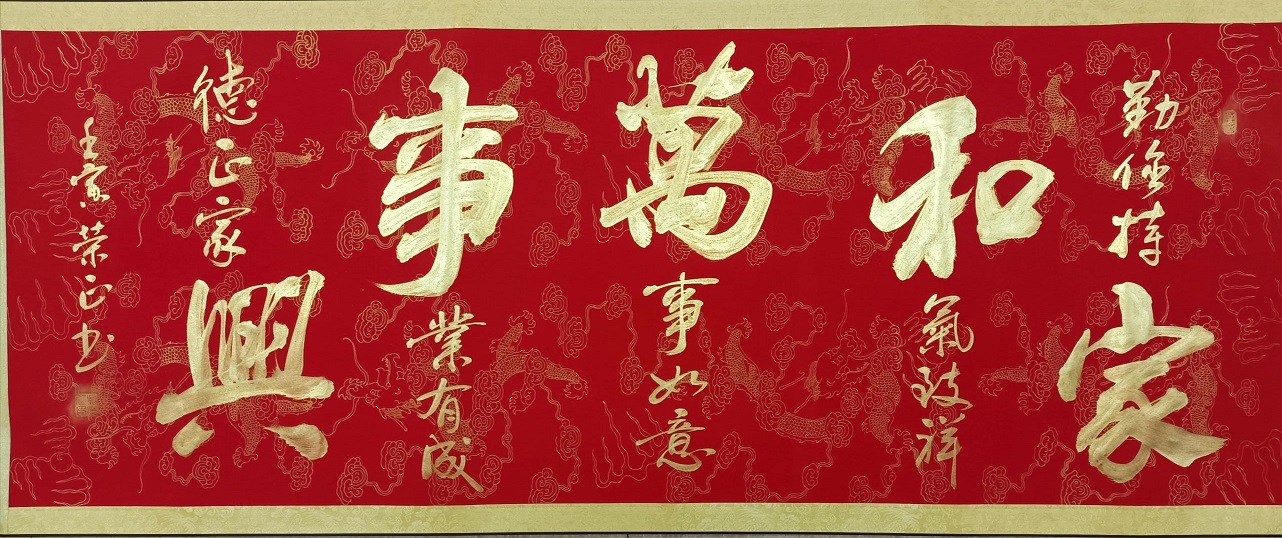 勤儉持家
和氣致祥
萬事如意
事業有成
德正家興
壬寅榮正书